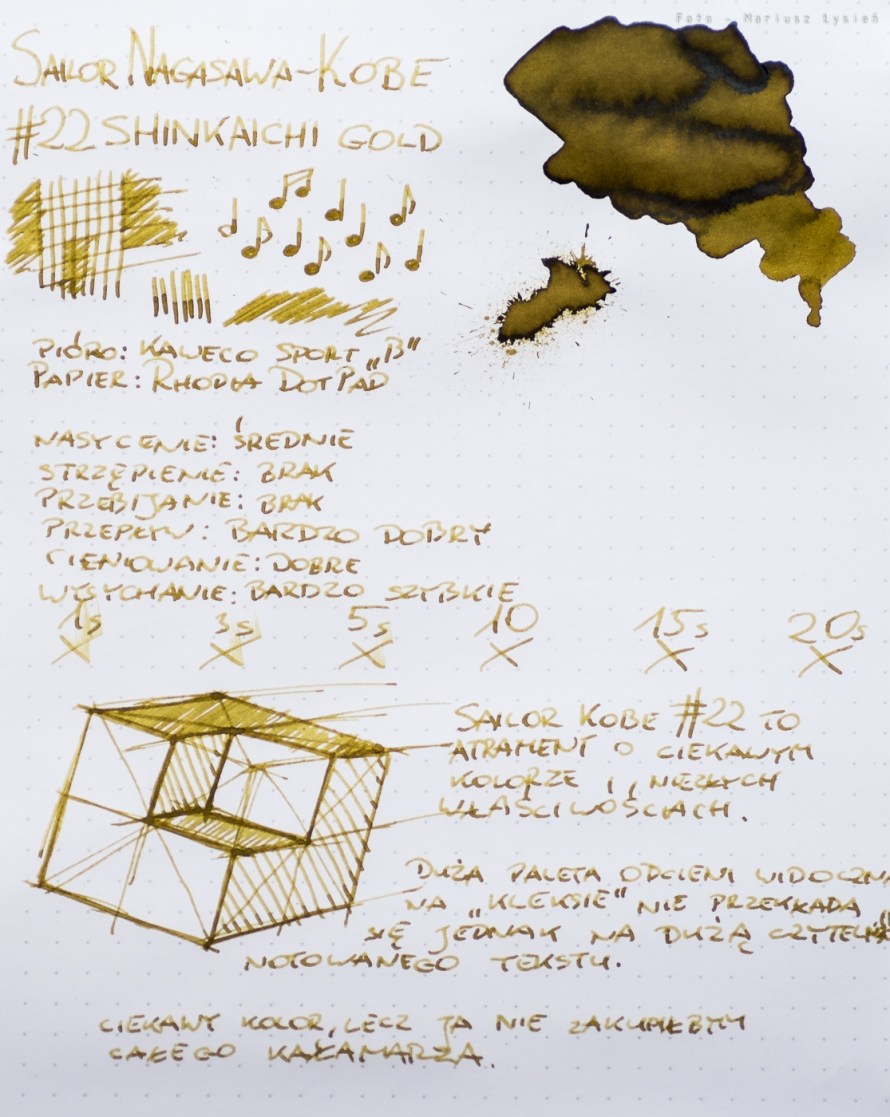 Foto - Mariusz Łysień
SAILOR NAGASAWA-KOBE
#22 SHINKAICHI GOLD
PIÓRO: KAWECO SPORT „B"
PAPIER: RHODIA DOTPAD
NASYCENIE: ŚREDNIE
STRZĘPIENIE: BRAK
PRZEBIJANIE: BRAK
PRZEPŁYW: BARDZO DOBRY
CIENIOWANIE: DOBRE
WYSYCHANIE: BARDZO SZYBKIE
1s 3s 5s 10 15s 20s
SAILOR KOBE #22 TO
ATRAMENT O CIEKAWYM
KOLORZE I NIEZŁYCH
WŁAŚCIWOŚCIACH.
DUŻA PALETA ODCIENI WIDOCZNA
NA „KLEKSIE" NIE PRZEKŁADA
SIĘ JEDNAK NA DUŻĄ
NOTOWANEGO TEKSTU.
CIEKAWY KOLOR, LECZ JA NIE ZAKUPIŁBYM
CAŁEGO KAŁAMARZA.